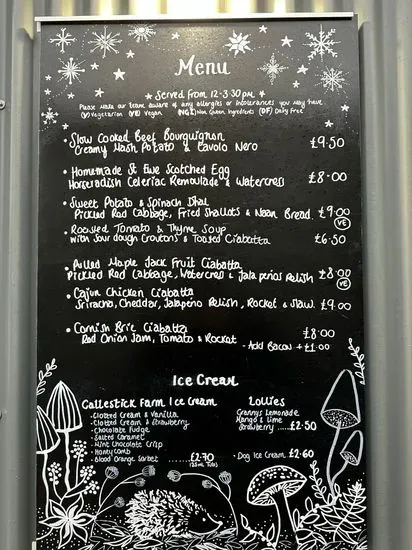 Menu
Served from 12-3.30pm
Please make our team aware of any allergies or intolerances you may have
(V) Vegetarian (VE) Vegan (NGI) Non Gluten Ingredients (DF) Dairy Free
• Slow Cooked Beef Bourguignon £9.50
Creamy Mash Potato & Cavolo Nero
• Homemade St Ewe Scotched Egg £8.00
Horseradish Celeriac Remoulade & Watercress
• Sweet Potato & Spinach Dhal
Pickled Red Cabbage, Fried Shallots & Naan Bread. £9.00
VE
• Roasted Tomato & Thyme Soup £6.50
with Sour dough Croutons & Toasted Ciabatta
• Pulled Maple Jack Fruit Ciabatta
Pickled Red Cabbage, Watercress & Jalapeños Relish £8.00
VE
• Cajun Chicken Ciabatta
Sriracha, Cheddar, Jalapeño Relish, Rocket & Slaw. £9.00
• Cornish Brie Ciabatta £8.00
Red Onion Jam, Tomato & Rocket
- Add Bacon + £1.00
Ice Cream
Callestick Farm Ice Cream
• Clotted Cream & Vanilla
• Clotted Cream & Strawberry
• Chocolate Fudge
• Salted Caramel
• Mint Chocolate Crisp
• Honeycomb
• Blood Orange Sorbet
£2.70
(125ml Tubs)
Lollies
Granny's Lemonade
Mango & Lime
Strawberry .....£2.50
• Dog Ice Cream £2.60